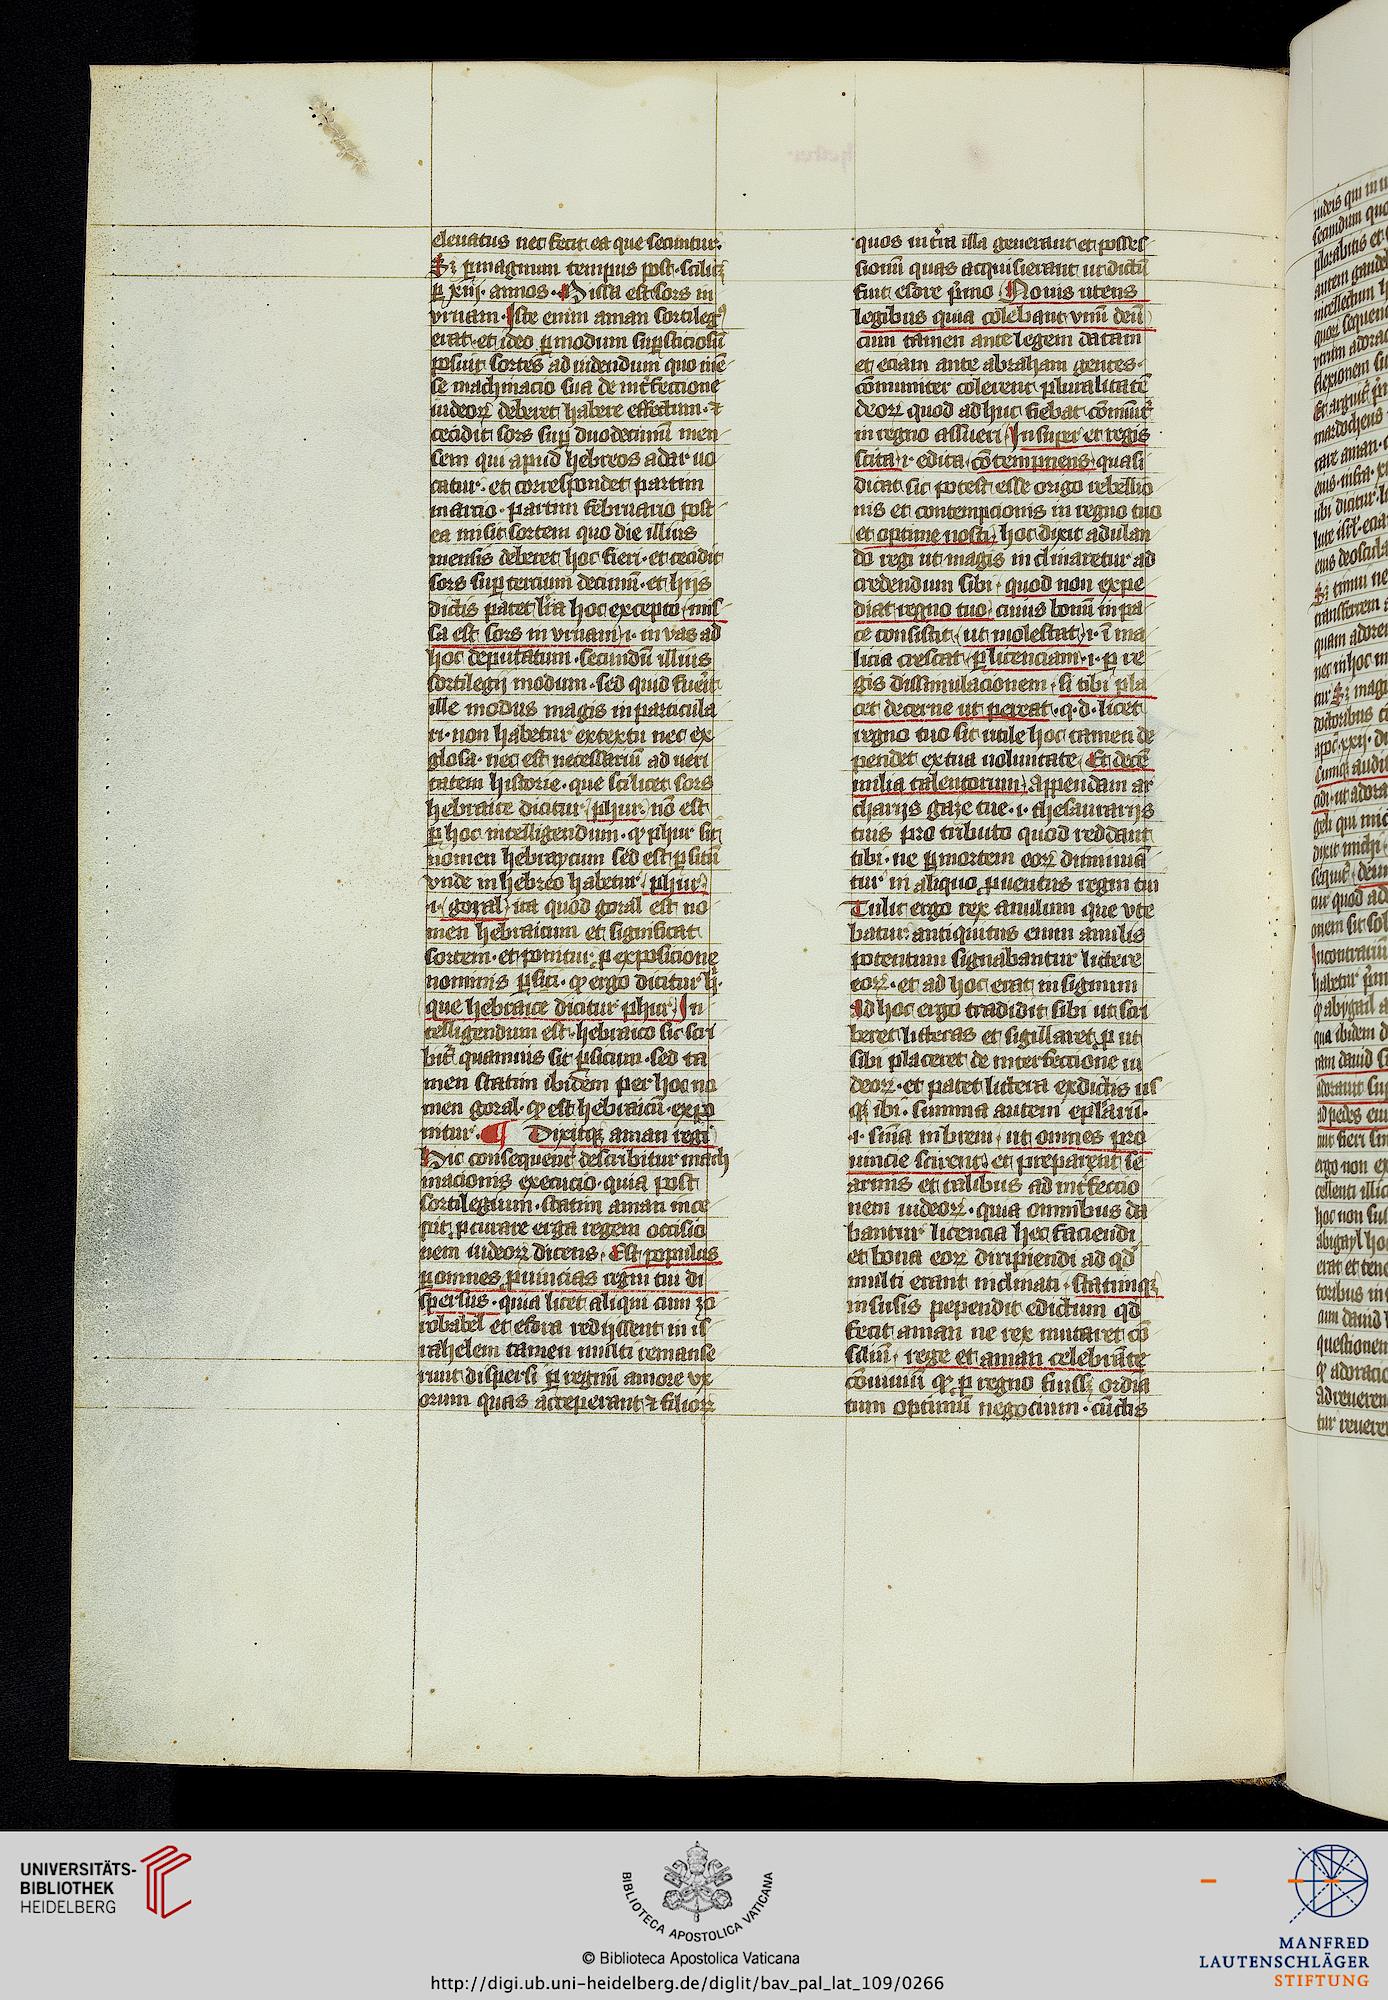 eleuatus nec fecit ea que secuntur.
Sꝫ ꝑ magnum tempus post scilicꝫ
ꝑ xiij annos. Missa est sors in
vrnam. Iste enim aman sortileg9
erat. et ideo ꝑ modum suꝑsticiosū
posuit sortes ad uidendum quo mē
se machinacio sua de int̄fectione
iudeoꝝ deberet habere effectum. ⁊
cecidit sors suꝑ duodecimū men
sem qui apud hebreos adar uo
catur. et correspondet partim
marcio. partim februario post
ea misit sortem quo die illius
mensis deberet hoc fieri. et cecidit
sors suꝑ tercium decimū. et hijs
dictis patet lr̄a hoc excepto mis
sa est sors in vrnam .i. in vas ad
hoc deputatum. secundū illius
sortilegij modum. sed quid fuerit
ille modus magis in particula
ri. non habetur ex textu nec ex
glosa. nec est necessariū ad ueri
tatem historie. que scilicet sors
hebraice dicitur phur. nō est
ꝑ hoc intelligendum. qͥ phur sit
nomen hebraycum sed est ꝑsicū
vnde in hebreo habetur phur
.i. goral ita quod goral est no
men hebraicum et significat
sortem. et ponitur ꝓ exposicione
nominis ꝑsici. qͥ ergo dicitur h̄
que hebraice dicitur phur. In
telligendum est. hebraico sic scri
bit̄ quamuis sit ꝑsicum. sed ta
men statim ibidem per hoc no
men goral. qͥ est hebraicū. expo
nitur. ¶ Dixitqꝫ aman regi
Hic consequent̄ describitur mach
inacionis execucio. quia post
sortilegium. statim aman ince
pit ꝓcurare erga regem occisio
nem iudeoꝝ dicens. Est populus
ꝑ omnes ꝓuincias regni tui di
spersus. quia licet aliqui cum zo
robabel et esdra redijssent in is
rahelem tamen multi remanse
runt dispersi ꝑ regnū amore vx
orum quas acceperant ⁊ filioꝝ
quos in tr̄a illa generant et posses
sionū quas acquisierant ut dictū
fuit esdre pͥmo Nouis utens
legibus quia colebant vnū deū
cum tamen ante legem datam
et eciam ante abraham gentes.
cōmuniter colerent pluralitatē
deoꝝ quod adhuc fiebat cōmunit̄
in regno assueri. Insuper et regis
scita .i. edita cōtempnens quasi
dicat sic potest esse origo rebellio
nis et contempcionis in regno tuo
et optime nosti. hoc dixit adulan
do regi ut magis inclinaretur ad
credendum sibi. quod non expe
diat regno tuo cuius bonū in pa
ce consistit ut molestat .i. ī ma
licia crescat ꝑ licenciam .i. ꝑ re
gis dissimulacionem. si tibi pla
cet decerne ut pereat. q.d. licet
regno tuo sit utile hoc tamen de
pendet ex tua uoluntate. Et decē
milia talentorum. Appendam ar
charijs gaze tue .i. thesaurarijs
tuis pro tributo quod reddant
tibi. ne ꝑ mortem eoꝝ diminua
tur in aliquo ꝓuentus regni tui
Tulit ergo rex anulum que vte
batur. antiquitus enim anulis
potentum signabantur littere
eoꝝ. et ad hoc erat insignum
Ad hoc ergo tradidit sibi ut scri
beret litteras et sigillaret ꝓ ut
sibi placeret de interfectione iu
deoꝝ. et patet littera ex dictis us
qꝫ ibi. summa autem ep̄larū.
.i. sm̄a in breui. ut omnes pro
uincie scirent et prepararent se
armis et talibus ad int̄fectio
nem iudeoꝝ. quia omnibus da
bantur licencia hec faciendi
et bona eoꝝ diripiendi ad qd̄
multi erant inclinati. statimqꝫ
in susis pependit edictum qd̄
fecit aman ne rex mutaret cō
siliū. rege et aman celebrāte
conuiuiū qͥ ꝑ regno fuissꝫ ordia
tum optimū negocium. cūctis
UNIVERSITÄTS-
BIBLIOTHEK
HEIDELBERG
BIBLIOTECA APOSTOLICA VATICANA
© Biblioteca Apostolica Vaticana
http://digi.ub.uni-heidelberg.de/diglit/bav_pal_lat_109/0266
MANFRED
LAUTENSCHLÄGER
STIFTUNG